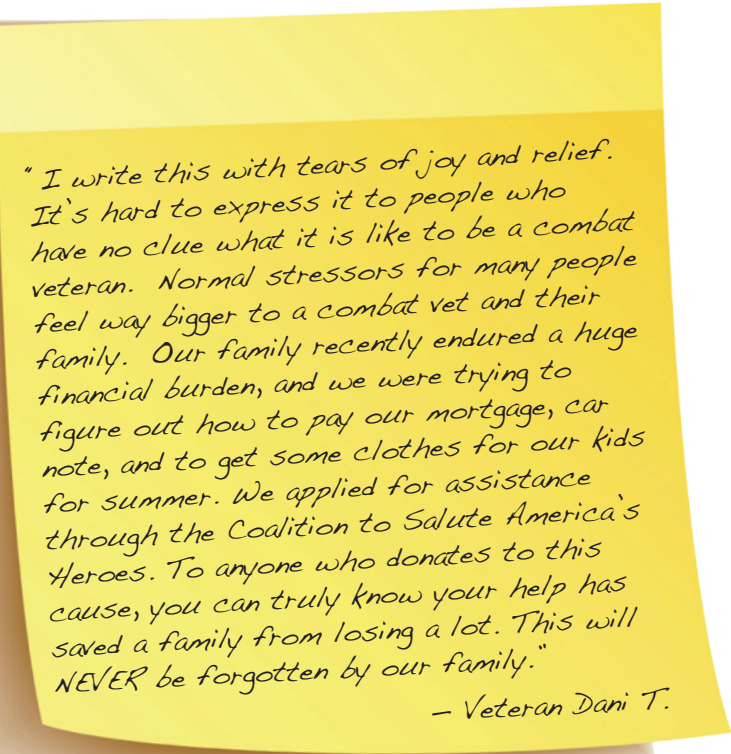 " I write this with tears of joy and relief.
It's hard to express it to people who
have no clue what it is like to be a combat
veteran.  Normal stressors for many people
feel way bigger to a combat vet and their
family.  Our family recently endured a huge
financial burden, and we were trying to
figure out how to pay our mortgage, car
note, and to get some clothes for our kids
for summer. We applied for assistance
through the Coalition to Salute America's
Heroes. To anyone who donates to this
cause, you can truly know your help has
saved a family from losing a lot. This will
NEVER be forgotten by our family."
– Veteran Dani T.